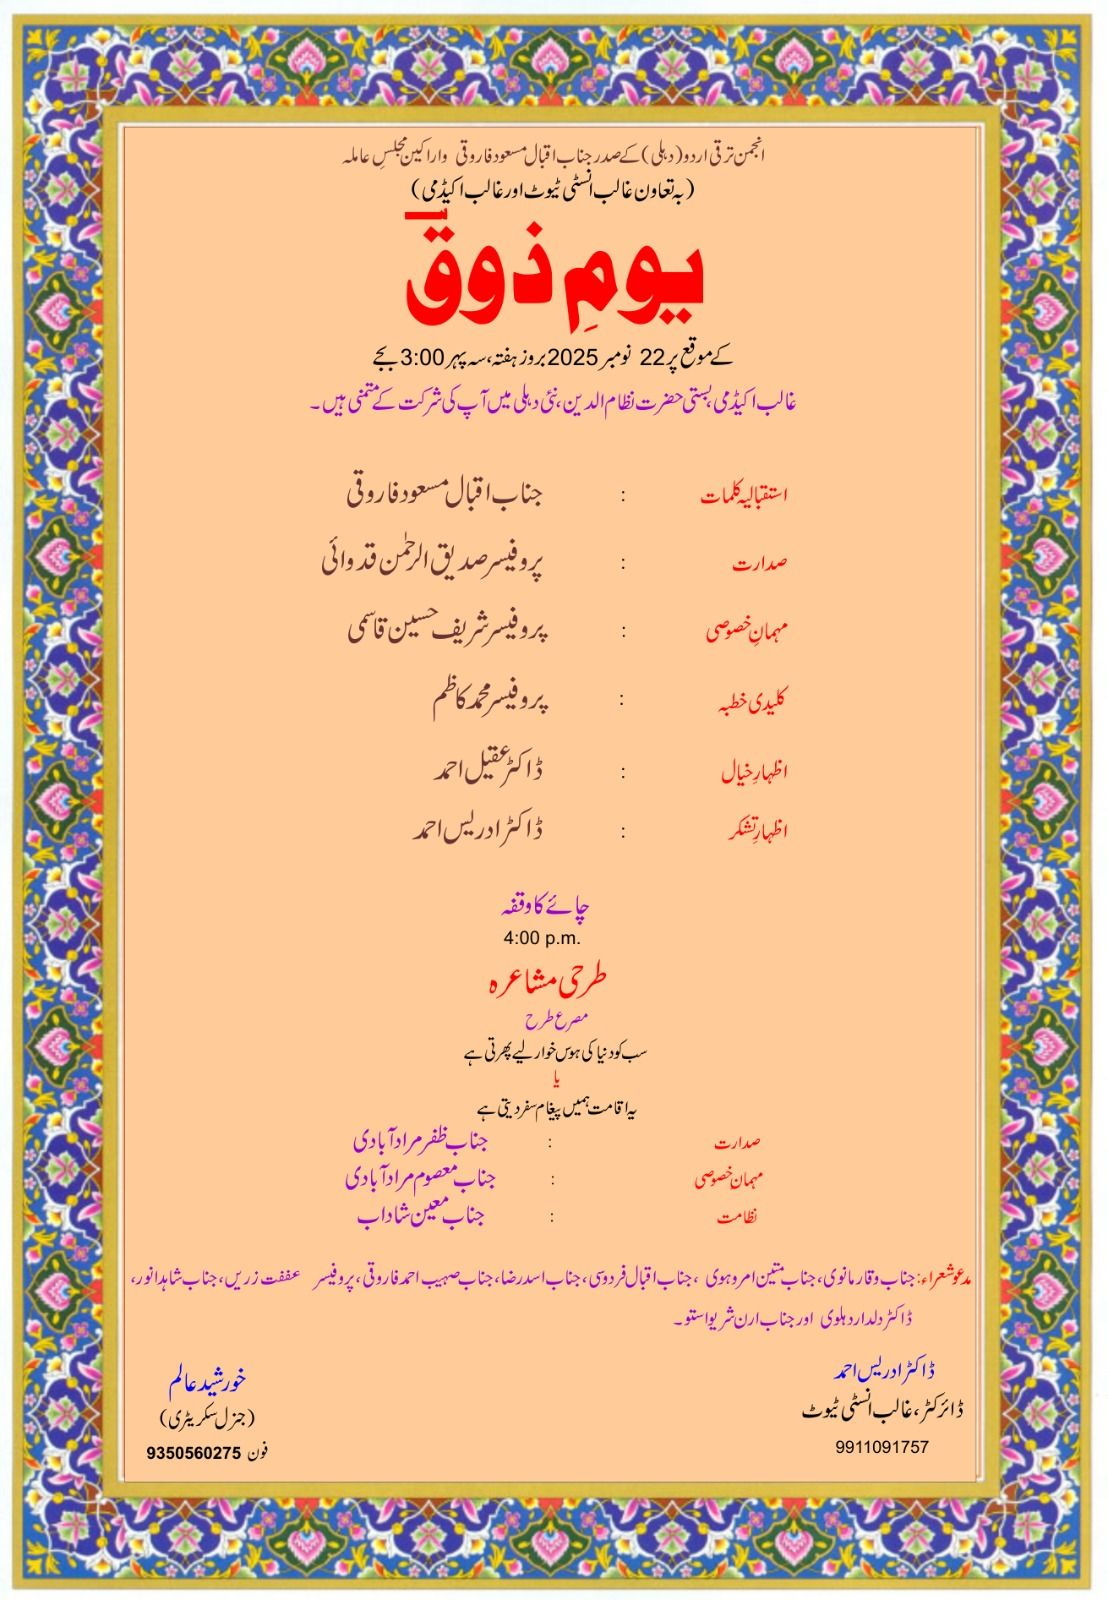 انجمن ترقی اردو (دہلی) کے صدر جناب اقبال مسعود فاروقی واراکین مجلسِ عاملہ
(بہ تعاون غالب انسٹی ٹیوٹ اور غالب اکیڈمی)
یومِ ذوقؔ
کے موقع پر 22 نومبر 2025 بروز ہفتہ، سہ پہر 3:00 بجے
غالب اکیڈمی، بستی حضرت نظام الدین، نئی دہلی میں آپ کی شرکت کے متمنی ہیں۔
استقبالیہ کلمات : جناب اقبال مسعود فاروقی
صدارت : پروفیسر صدیق الرحمٰن قدوائی
مہمانِ خصوصی : پروفیسر شریف حسین قاسمی
کلیدی خطبہ : پروفیسر محمد کاظم
اظہارِ خیال : ڈاکٹر عقیل احمد
اظہارِ تشکر : ڈاکٹر ادریس احمد
چائے کا وقفہ
4:00 p.m.
طرحی مشاعرہ
مصرع طرح
سب کو دنیا کی ہوس خوار لیے پھرتی ہے
یا
یہ اقامت ہمیں پیغام سفر دیتی ہے
صدارت : جناب ظفر مرادآبادی
مہمان خصوصی : جناب معصوم مرادآبادی
نظامت : جناب معین شاداب
مدعو شعراء: جناب وقار مانوی، جناب متین امروہوی، جناب اقبال فردوسی، جناب اسد رضا، جناب صہیب احمد فاروقی، پروفیسر عففت زریں، جناب شاہد انور،
ڈاکٹر دلدار دہلوی اور جناب ارن شریواستو۔
ڈاکٹر ادریس احمد
ڈائرکٹر، غالب انسٹی ٹیوٹ
9911091757
خورشید عالم
(جنرل سکریٹری)
فون 9350560275